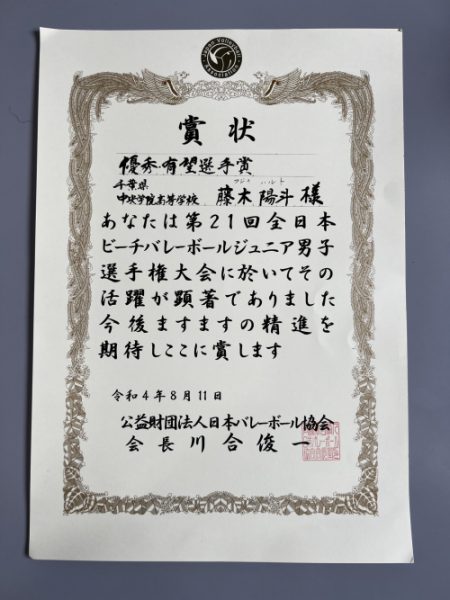 Japan Volleyball
Association
賞状
優秀・有望選手賞
千葉県
中央学院高等学校
藤木 陽斗 様
ハルト
あなたは第21回全日本
ビーチバレーボールジュニア男子
選手権大会に於いてその
活躍が顕著でありました
今後ますますの精進を
期待しここに賞します
令和4年8月11日
公益財団法人日本バレーボール協会
会長川合俊一